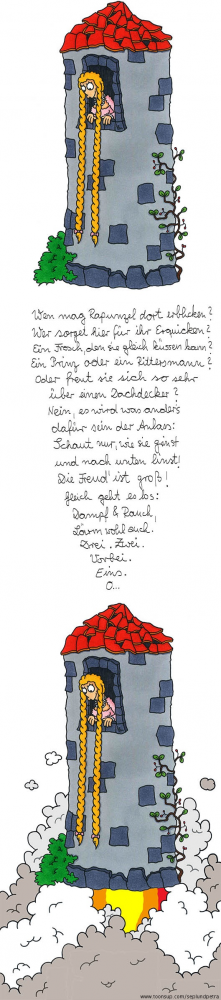 Wen mag Rapunzel dort erblicken?
Wer sorget hier für ihr Erquicken?
Ein Frosch, den sie gleich küssen kann?
Ein Prinz oder ein Rittersmann?
Oder freut sie sich so sehr
über einen Dachdecker?
Nein, es wird was anders
dafür sein der Anlass:
Schaut nur, wie sie grinst
und nach unten linst!
Die Freud' ist groß!
Gleich geht es los:
Dampf & Rauch,
Lärm wohl auch.
Drei. Zwei.
Vorbei.
Eins.
0...
www.toonsup.com/sepiundpietro